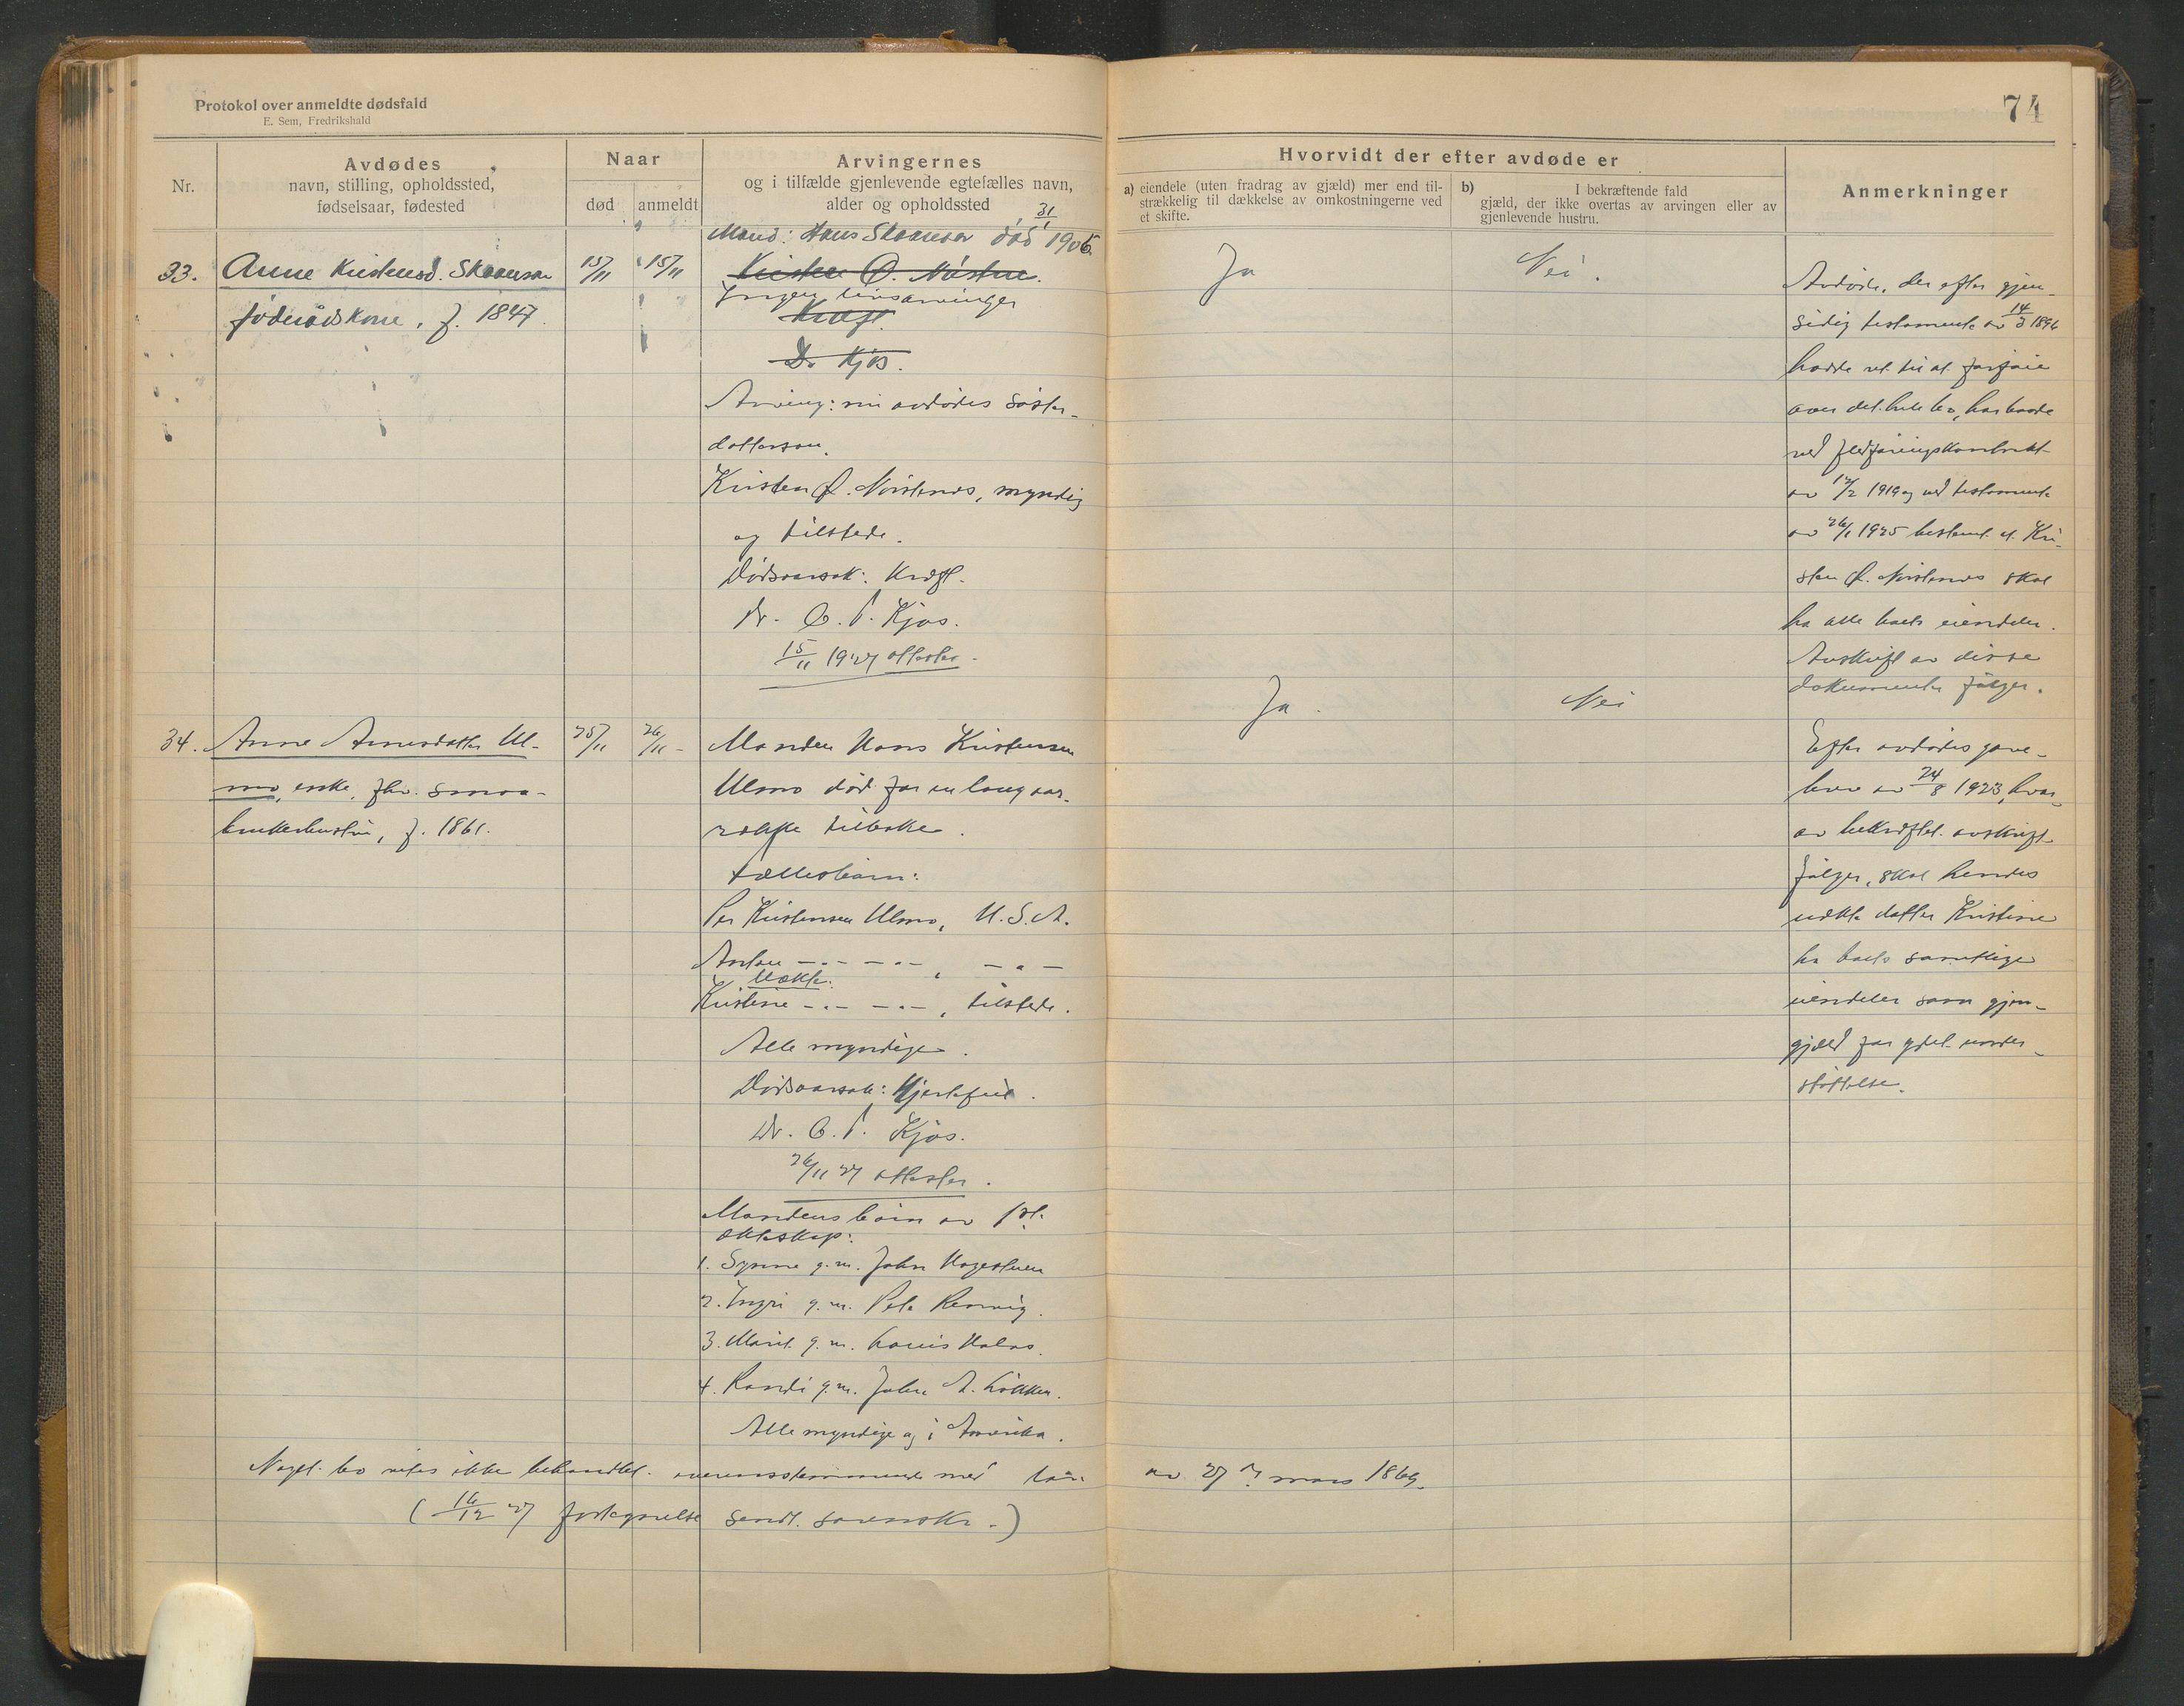 Protokol over anmeldte dødsfald
E. Sem, Fredrikshald
74
Nr.
Avdødes
navn, stilling, opholdssted,
fødselsaar, fødested
Naar
død
anmeldt
Arvingernes
og i tilfælde gjenlevende egtefælles navn,
alder og opholdssted
Hvorvidt der efter avdøde er
a) eiendele (uten fradrag av gjæld) mer end til-
strækkelig til dækkelse av omkostningerne ved
et skifte.
b) I bekræftende fald
gjæld, der ikke overtas av arvingen eller av
gjenlevende hustru.
Anmerkninger
33.
Anne Kristensd. Skaansar
føderådskone, f. 1847.
15/11
15/11
Mand: Hans Skaansar død 31/1 1906.
Kristen Ø.
Ingen livsarvinger
Kræft.
Dr Kjøs.
Arving: nu avdødes søster-
dattersøn.
Kristen Ø. Nørstenes, myndig
og tilstede.
Dødsaarsak: Kræft.
Dr. O. P. Kjøs.
15/11 1927 attester.
Ja
Nei.
Avdøde, der efter gjen-
sidig testamente av 14/3 1896
hadde ret til at forføie
over det hele bo, har baade
ved fledføringskontrakt
av 12/2 1919 og ved testamente
av 26/1 1925 bestemt at Kri-
sten Ø. Nørstenes skal
ha alle boets eiendeler.
Avskrift av disse
dokumenter følger.
34.
Anne Arnesdatter Ul-
mo, enke, fhv. smaa-
brukerhustru, f. 1861.
25/11
26/11 -
Manden Hans Kristensen
Ulmo død for en lang aar-
række tilbake.
Fællesbarn:
Per Kristensen Ulmo, U.S.A.
Anton -"- -"-, -"-
Uækte:
Kristine -"- -"-, tilstede.
Alle myndige.
Dødsaarsak: Hjertefeil.
Dr. O. P. Kjøs.
26/11 27 attester.
Mandens barn av 1st.
ækteskap:
1. Synne g.m. John Hagestuen
2. Ingri g.m. Pete
3. Marit g.m. Louis
4. Randi g.m. John A. Løkken.
Alle myndige og i Amerika.
Ja.
Nei
Efter avdødes gave-
brev av 24/8 1923, hvor-
av bekræftet avskrift
følger, skal hendes
uekte datter Kristine
ha boets samtlige
eiendeler som gjen-
gjæld for ydet under-
støttelse.
Noget bo vites ikke behandlet overensstemmende med lov av 27de mars 1869.
(16/12 27 fortegnelse sendt sorenskr.)